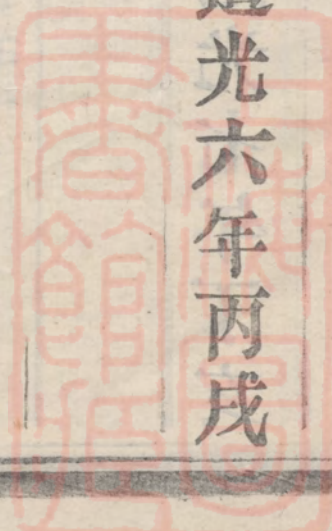 道光六年丙戌